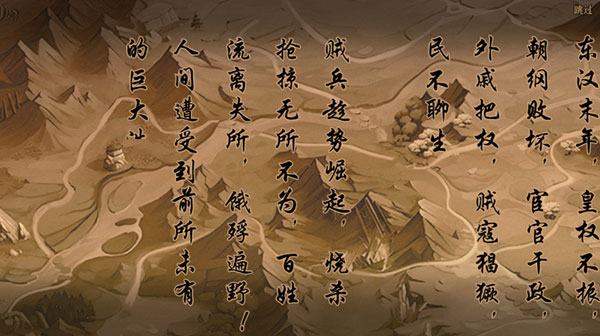 跳过
东汉末年，皇权不振，
朝纲败坏，宦官干政，
外戚把权，贼寇猖獗，
民不聊生
贼兵趁势崛起，烧杀
抢掠无所不为，百姓
流离失所，饿殍遍野！
人间遭受到前所未有
的巨大